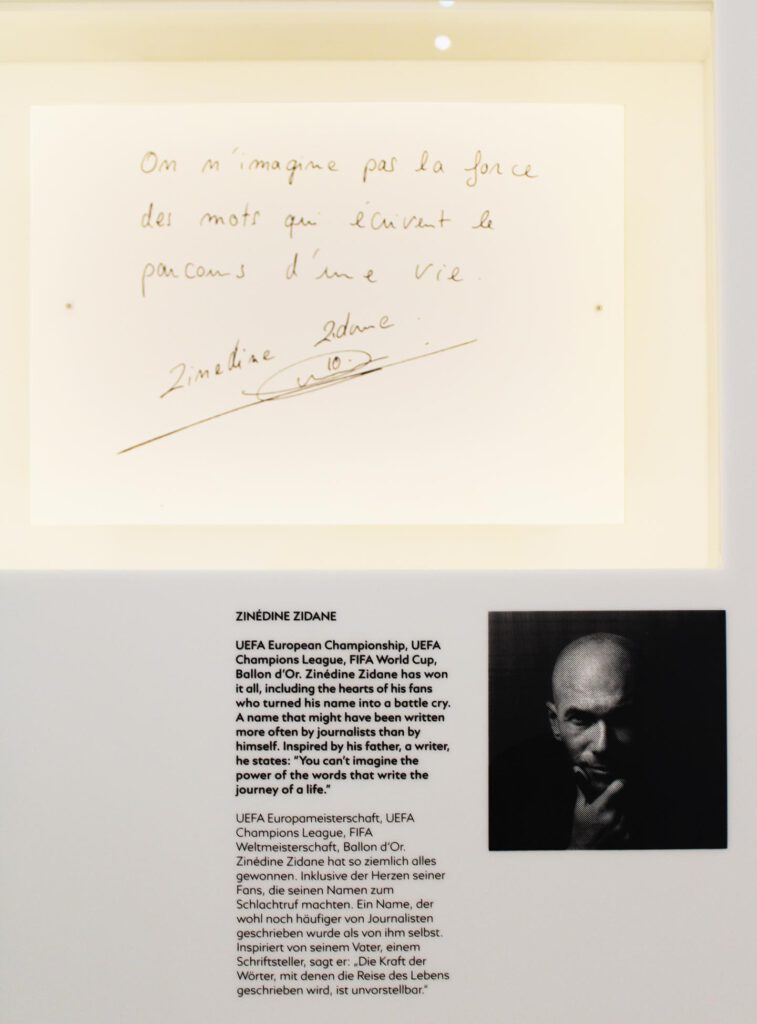 On n'imagine pas la force
des mots qui écrivent le
parcours d'une vie.
Zinedine Zidane
10.
ZINÉDINE ZIDANE
UEFA European Championship, UEFA
Champions League, FIFA World Cup,
Ballon d'Or. Zinédine Zidane has won
it all, including the hearts of his fans
who turned his name into a battle cry.
A name that might have been written
more often by journalists than by
himself. Inspired by his father, a writer,
he states: "You can't imagine the
power of the words that write the
journey of a life."
UEFA Europameisterschaft, UEFA
Champions League, FIFA
Weltmeisterschaft, Ballon d'Or.
Zinédine Zidane hat so ziemlich alles
gewonnen. Inklusive der Herzen seiner
Fans, die seinen Namen zum
Schlachtruf machten. Ein Name, der
wohl noch häufiger von Journalisten
geschrieben wurde als von ihm selbst.
Inspiriert von seinem Vater, einem
Schriftsteller, sagt er: „Die Kraft der
Wörter, mit denen die Reise des Lebens
geschrieben wird, ist unvorstellbar."